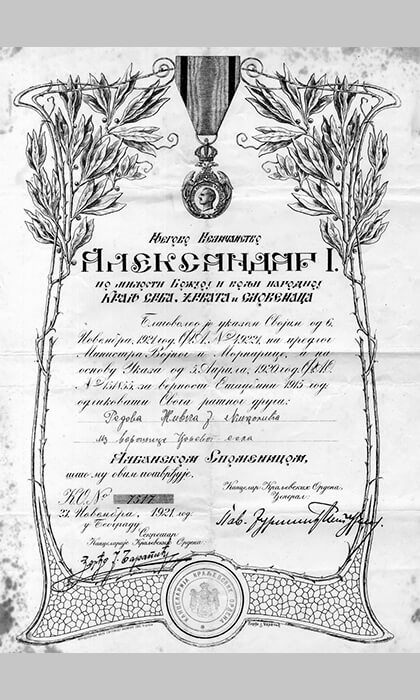 Његово Величанство
АЛЕКСАНДАР I.
по милости Божјој и вољи народној
КРАЉ СРБА, ХРВАТА и СЛОВЕНАЦА
Благоволео је указом Својим од 6.
Новембра, 1921 год. Ф.А. № 4922, на предлог
Министра Војног и Морнарице, а на
основу Указа од 5. Априла, 1920 год. Ф.А.О.
за верност Отаџбини 1915 год.
одликовати Свога ратног друга:
Редова Живка Ј.
из
Албанском Споменицом,
што му овим потврђује.
К.С. № 7517
Канцелар Краљевских Ордена,
Ђенерал
23. Новембра, 1921 год.
у Београду
Секретар
Канцеларије Краљевских Ордена
КАНЦЕЛАРИЈА КРАЉЕВСКИХ ОРДЕНА